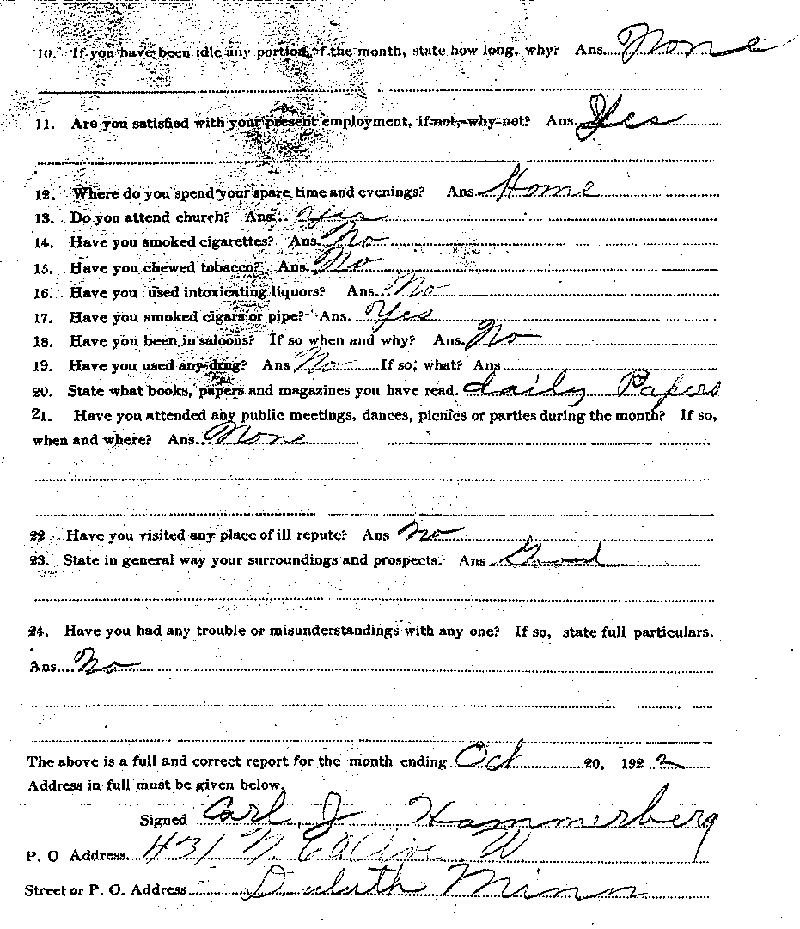 10. If you have been idle any portion of the month, state how long, why? Ans. None
11. Are you satisfied with your present employment, if not, why not? Ans. Yes
12. Where do you spend your spare time and evenings? Ans. Home
13. Do you attend church? Ans. yes
14. Have you smoked cigarettes? Ans. No
15. Have you chewed tobacco? Ans. No
16. Have you used intoxicating liquors? Ans. No
17. Have you smoked cigars or pipe? Ans. Yes
18. Have you been in saloons? If so when and why? Ans. No
19. Have you used any drug? Ans No If so, what? Ans
20. State what books, papers and magazines you have read. daily Papers
21. Have you attended any public meetings, dances, picnics or parties during the month? If so,
when and where? Ans. None
22 Have you visited any place of ill repute? Ans No
23. State in general way your surroundings and prospects. Ans Good
24. Have you had any trouble or misunderstandings with any one? If so, state full particulars.
Ans. No
The above is a full and correct report for the month ending Oct 20, 1922
Address in full must be given below.
Signed Carl J Hammerberg
P. O Address. 431 N. W
Street or P. O. Address Duluth Minn